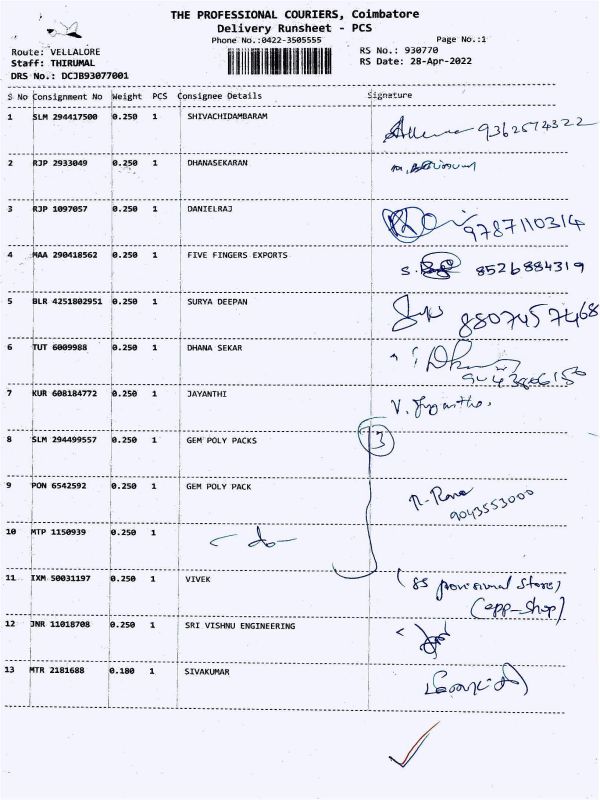 THE PROFESSIONAL COURIERS, Coimbatore
Delivery Runsheet - PCS
Phone No.:0422-3505555 Page No.:1
Route: VELLALORE RS No.: 930770
Staff: THIRUMAL RS Date: 28-Apr-2022
DRS No.: DCJB93077001
S No Consignment No Weight PCS Consignee Details Signature
1 SLM 294417500 0.250 1 SHIVACHIDAMBARAM 9362574322
2 RJP 2933049 0.250 1 DHANASEKARAN
3 RJP 1097057 0.250 1 DANIELRAJ 9787110314
4 MAA 290418562 0.250 1 FIVE FINGERS EXPORTS S. 8526884319
5 BLR 4251802951 0.250 1 SURYA DEEPAN 8807457468
6 TUT 6009988 0.250 1 DHANA SEKAR
7 KUR 608184772 0.250 1 JAYANTHI V. Jayanthi.
8 SLM 294499557 0.250 1 GEM POLY PACKS 3
9 PON 6542592 0.250 1 GEM POLY PACK
9043553000
10 MTP 1150939 0.250 1 - do -
11 IXM 50031197 0.250 1 VIVEK (SS provisional Stores)
(opp-shop)
12 JNR 11018708 0.250 1 SRI VISHNU ENGINEERING
13 MTR 2181688 0.180 1 SIVAKUMAR